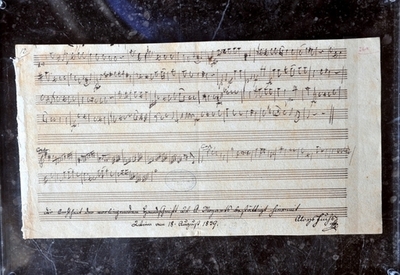 Die Ächtheit der vorliegenden Handschrift des A. Mozarts bestättigt hiermit
Wien am 18. August. 1839.
Aloys Fuchs